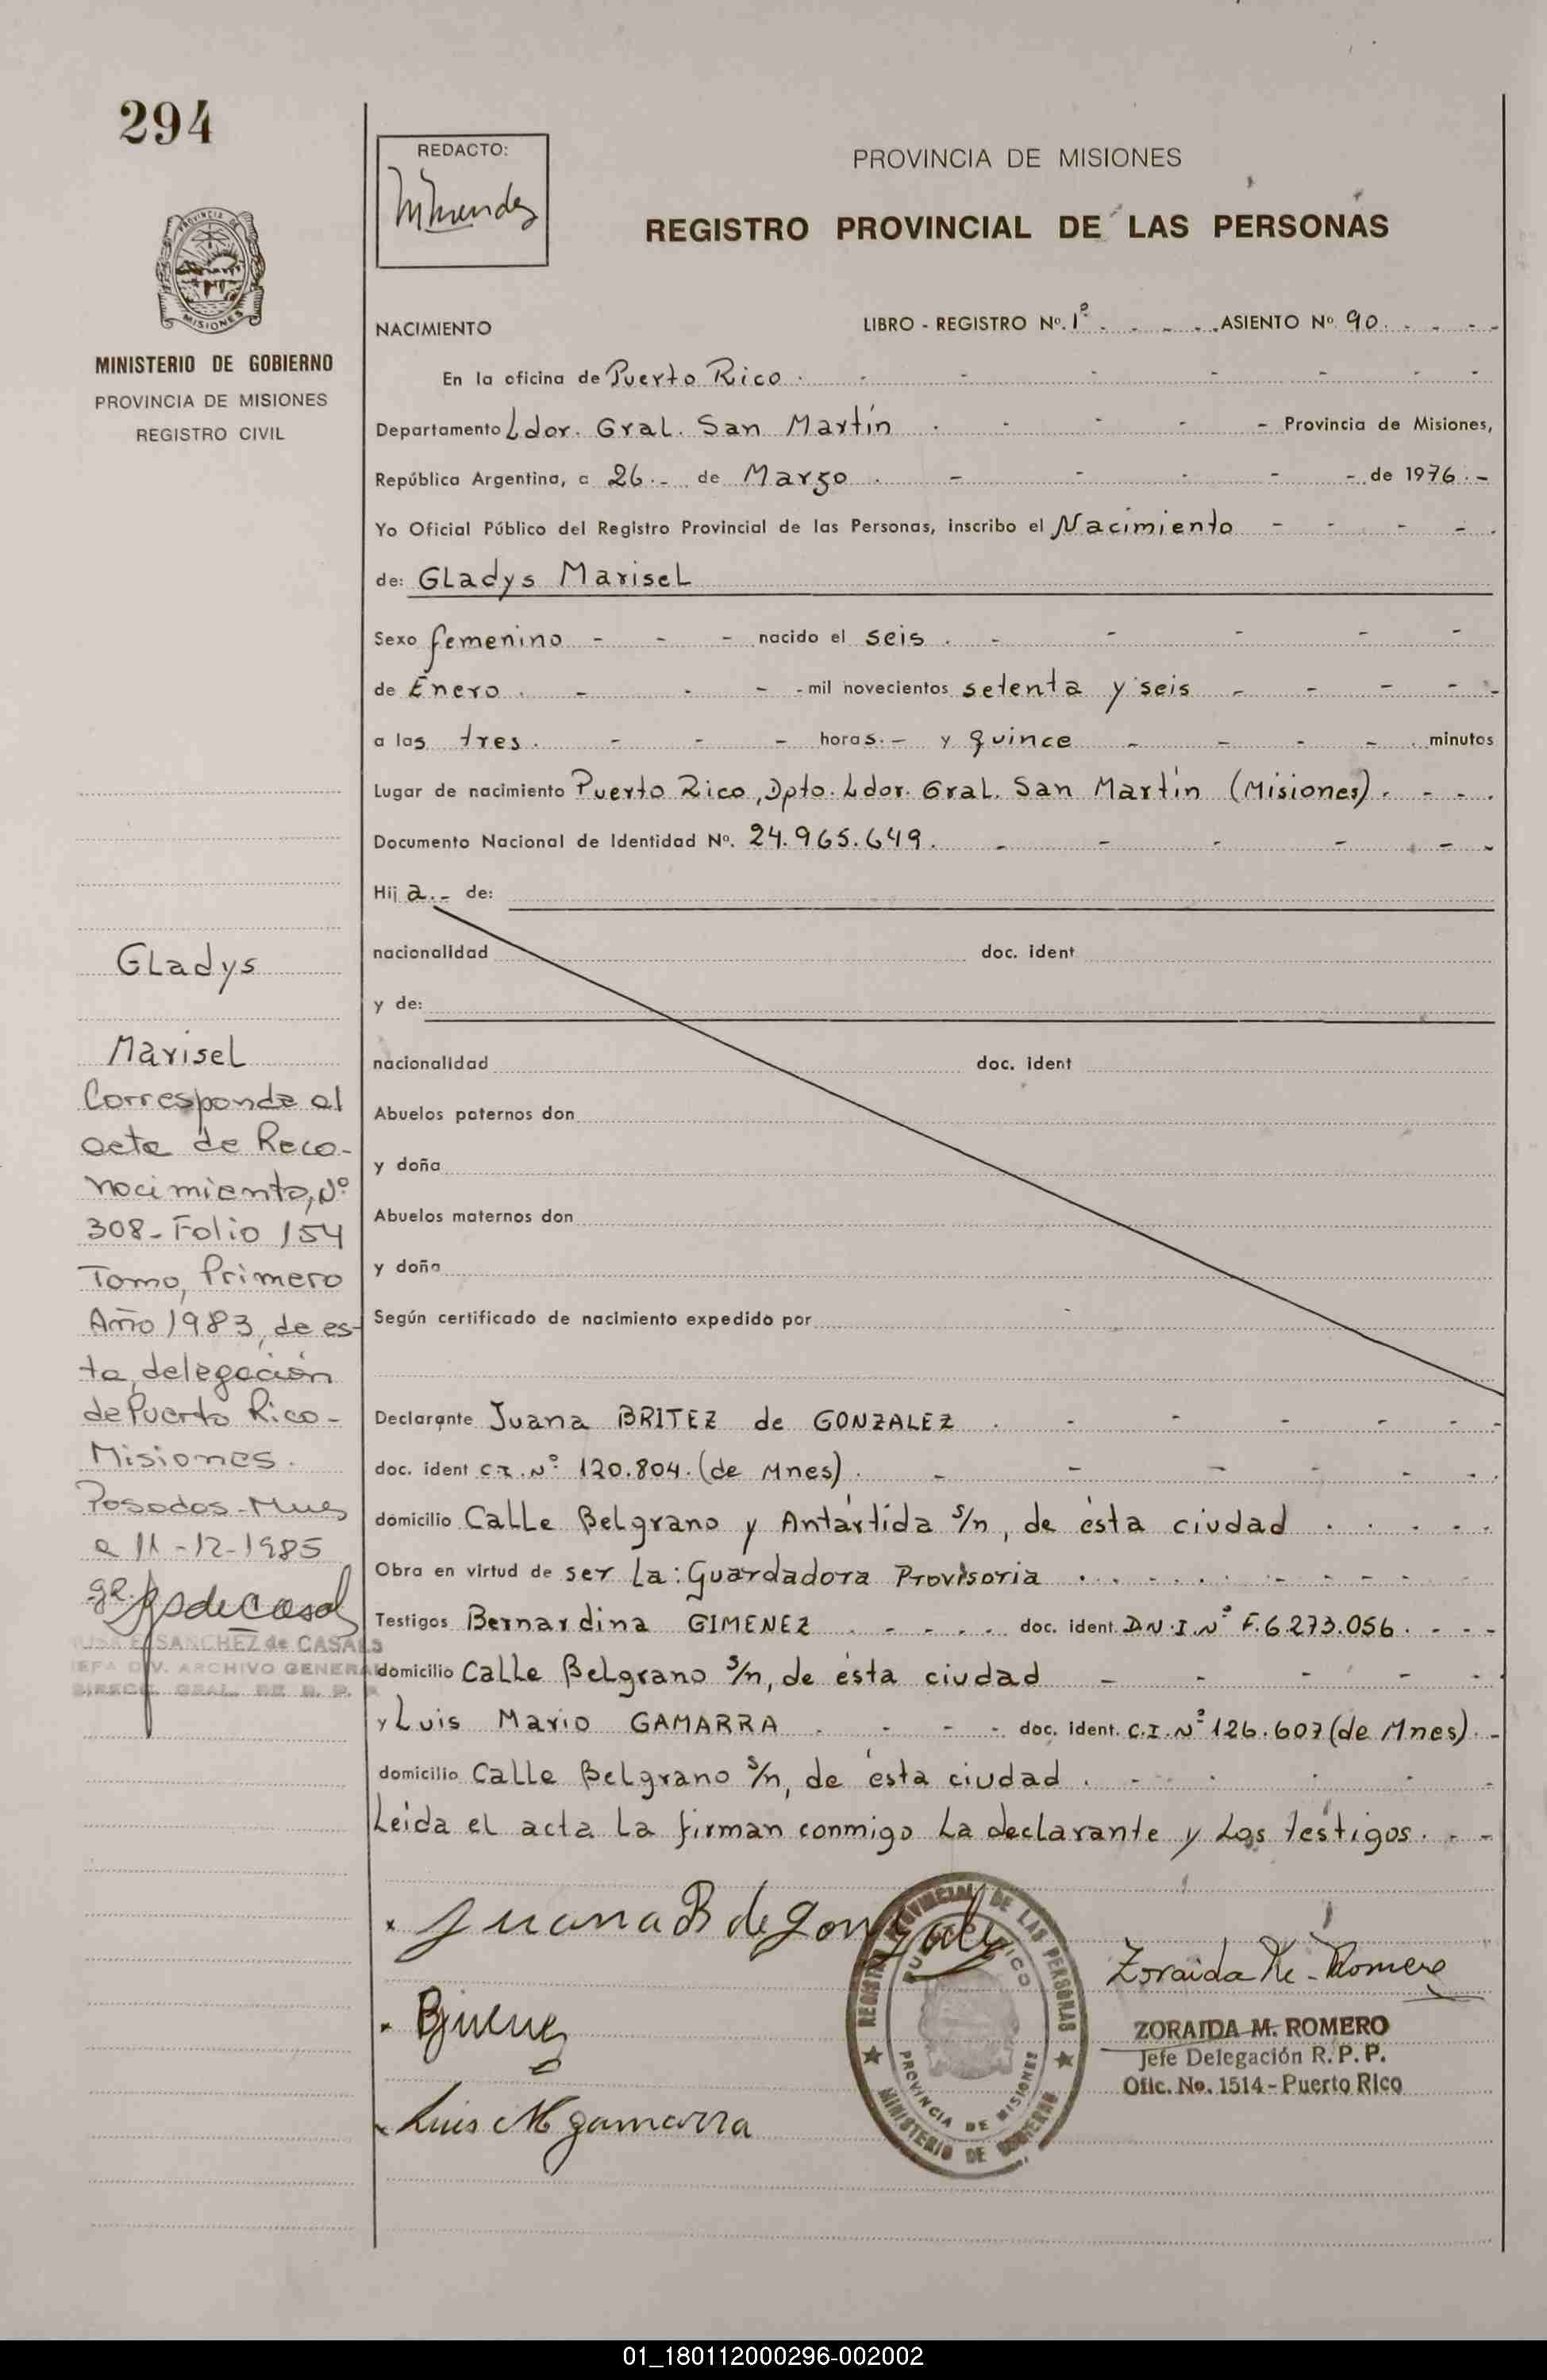 294
REDACTO:
PROVINCIA DE MISIONES
REGISTRO PROVINCIAL DE LAS PERSONAS
PROVINCIA DE
MISIONES
MINISTERIO DE GOBIERNO
PROVINCIA DE MISIONES
REGISTRO CIVIL
NACIMIENTO LIBRO - REGISTRO Nº. 1º ASIENTO Nº 90
En la oficina de Puerto Rico
Departamento Ldor. Gral. San Martín Provincia de Misiones,
República Argentina, a 26.- de Marzo de 1976.-
Yo Oficial Público del Registro Provincial de las Personas, inscribo el Nacimiento
de: Gladys Marisel
Sexo femenino nacido el seis
de Enero mil novecientos setenta y seis
a las tres horas.- y quince minutos
Lugar de nacimiento Puerto Rico, Dpto. Ldor. Gral. San Martín (Misiones)
Documento Nacional de Identidad Nº. 24.965.649.
Hij a.- de:
nacionalidad doc. ident
y de:
nacionalidad doc. ident
Abuelos paternos don
y doña
Abuelos maternos don
y doña
Según certificado de nacimiento expedido por
Declarante Juana BRITEZ de GONZALEZ
doc. ident C.I. Nº 120.804. (de Mnes)
domicilio Calle Belgrano y Antártida s/n, de ésta ciudad
Obra en virtud de ser la: Guardadora Provisoria
Testigos Bernardina GIMENEZ doc. ident. D.N.I. Nº F.6.273.056.
domicilio Calle Belgrano s/n, de ésta ciudad
y Luis Mario GAMARRA doc. ident. C.I. Nº 126.607 (de Mnes)
domicilio Calle Belgrano s/n, de ésta ciudad
Leída el acta la firman conmigo la declarante y los testigos.
Gladys
Marisel
Corresponde al
acta de Reco-
nocimiento, Nº
308 - Folio 154
Tomo, Primero
Año 1983, de es-
ta delegación
de Puerto Rico -
Misiones.
Posadas - Mnes
a 11-12-1985
SANCHEZ de CASALS
JEFA DIV. ARCHIVO GENERAL
DIRECC. GRAL. DE R. P. P.
Juana B de Gonzalez
Luis M Gamarra
REGISTRO PROVINCIAL DE LAS PERSONAS
PUERTO RICO
PROVINCIA DE MISIONES
MINISTERIO DE GOBIERNO
Zoraida M. Romero
ZORAIDA M. ROMERO
Jefe Delegación R. P. P.
Ofic. No. 1514 - Puerto Rico
01_180112000296-002002